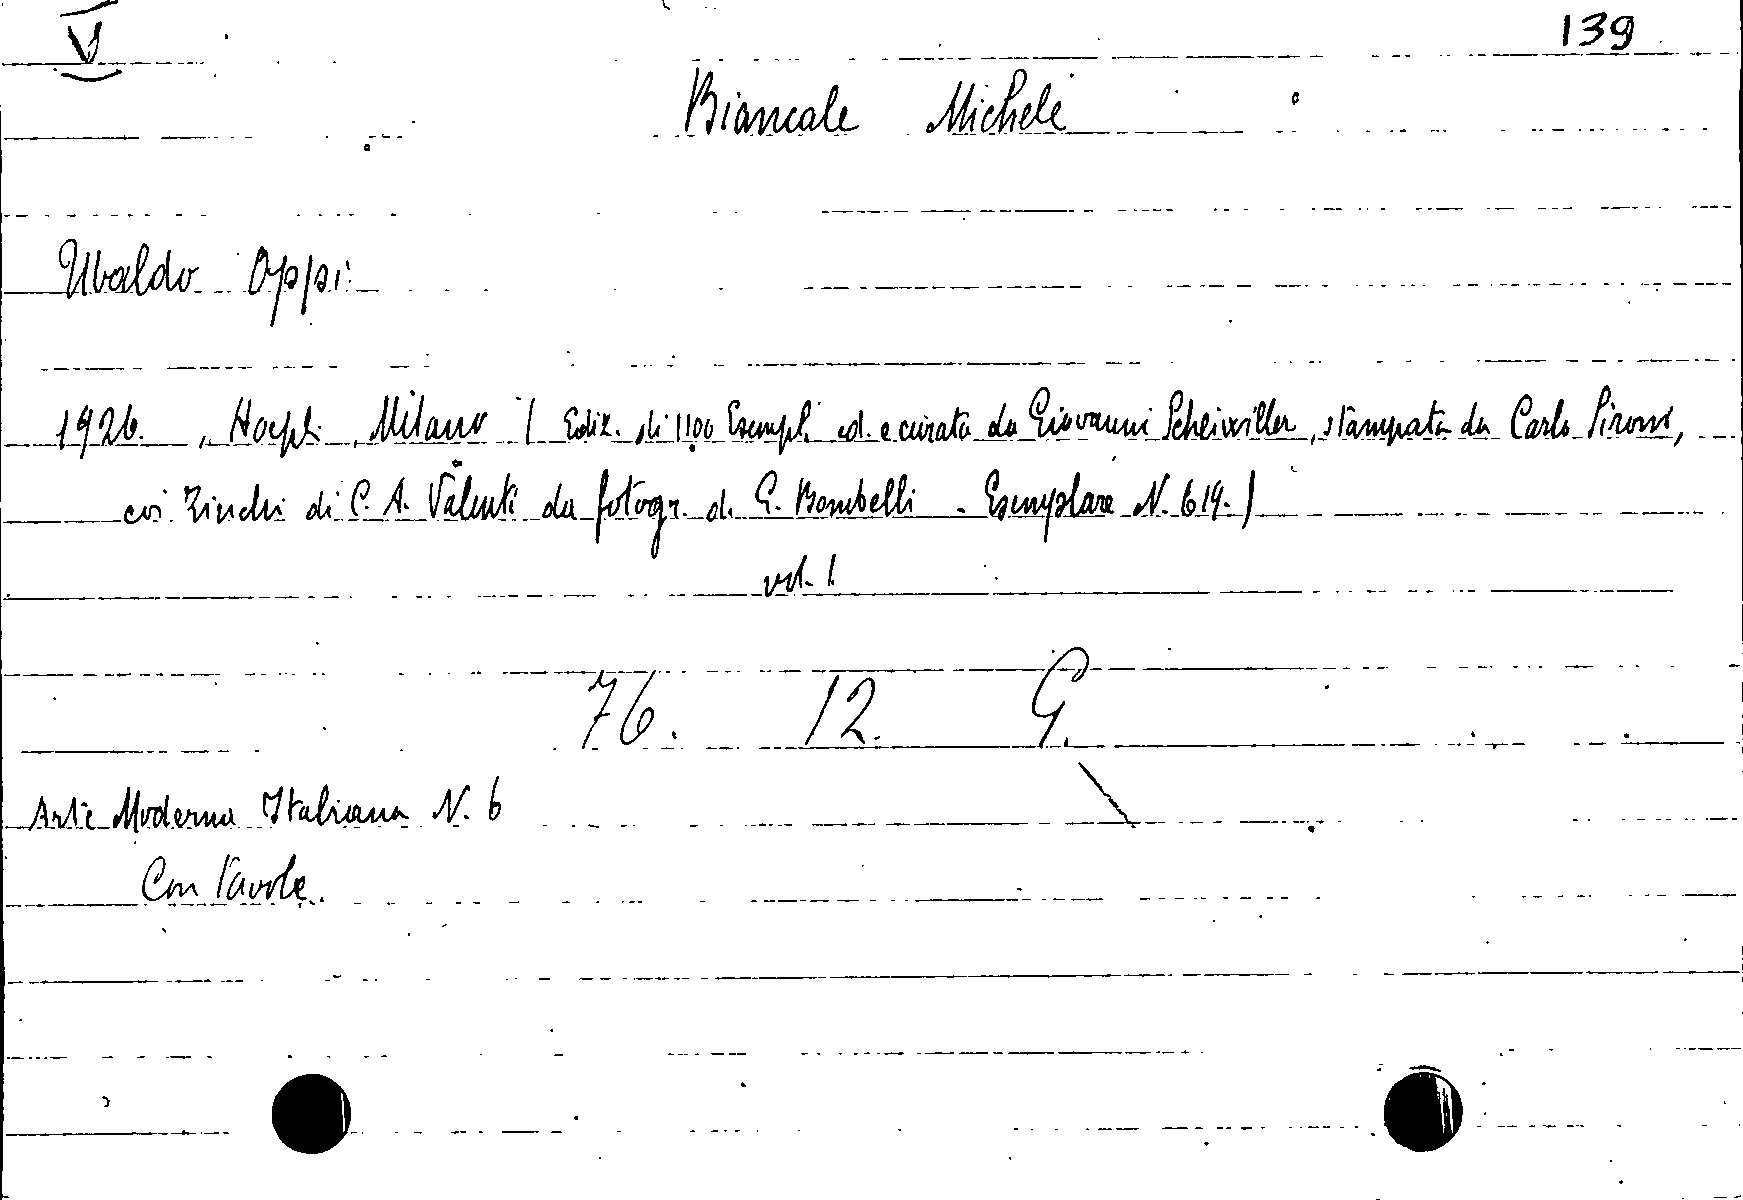 V
139
Biancale Michele
Ubaldo Oppi
1926. , Hoepli , Milano ( Ediz. di 1100 Esempl. ed. e curata da Giovanni Scheiwiller, stampata da Carlo Sironi,
coi Zinchi di C. A. Valenti da fotogr. di G. Bombelli - Esemplare N. 619.)
vol. 1.
76. 12. G.
Arte Moderna Italiana N. 6
Con Tavole.